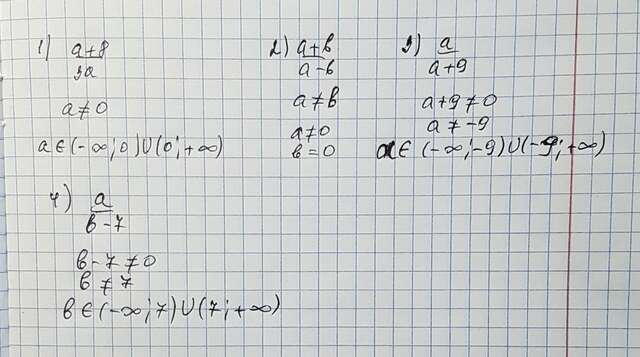 1) a+8/3a
a ≠ 0
a ∈ (-∞; 0) ∪ (0; +∞)
2) a+b/a-b
a ≠ b
a ≠ 0
b = 0
3) a/a+9
a+9 ≠ 0
a ≠ -9
a ∈ (-∞; -9) ∪ (-9; +∞)
4) a/b-7
b-7 ≠ 0
b ≠ 7
b ∈ (-∞; 7) ∪ (7; +∞)